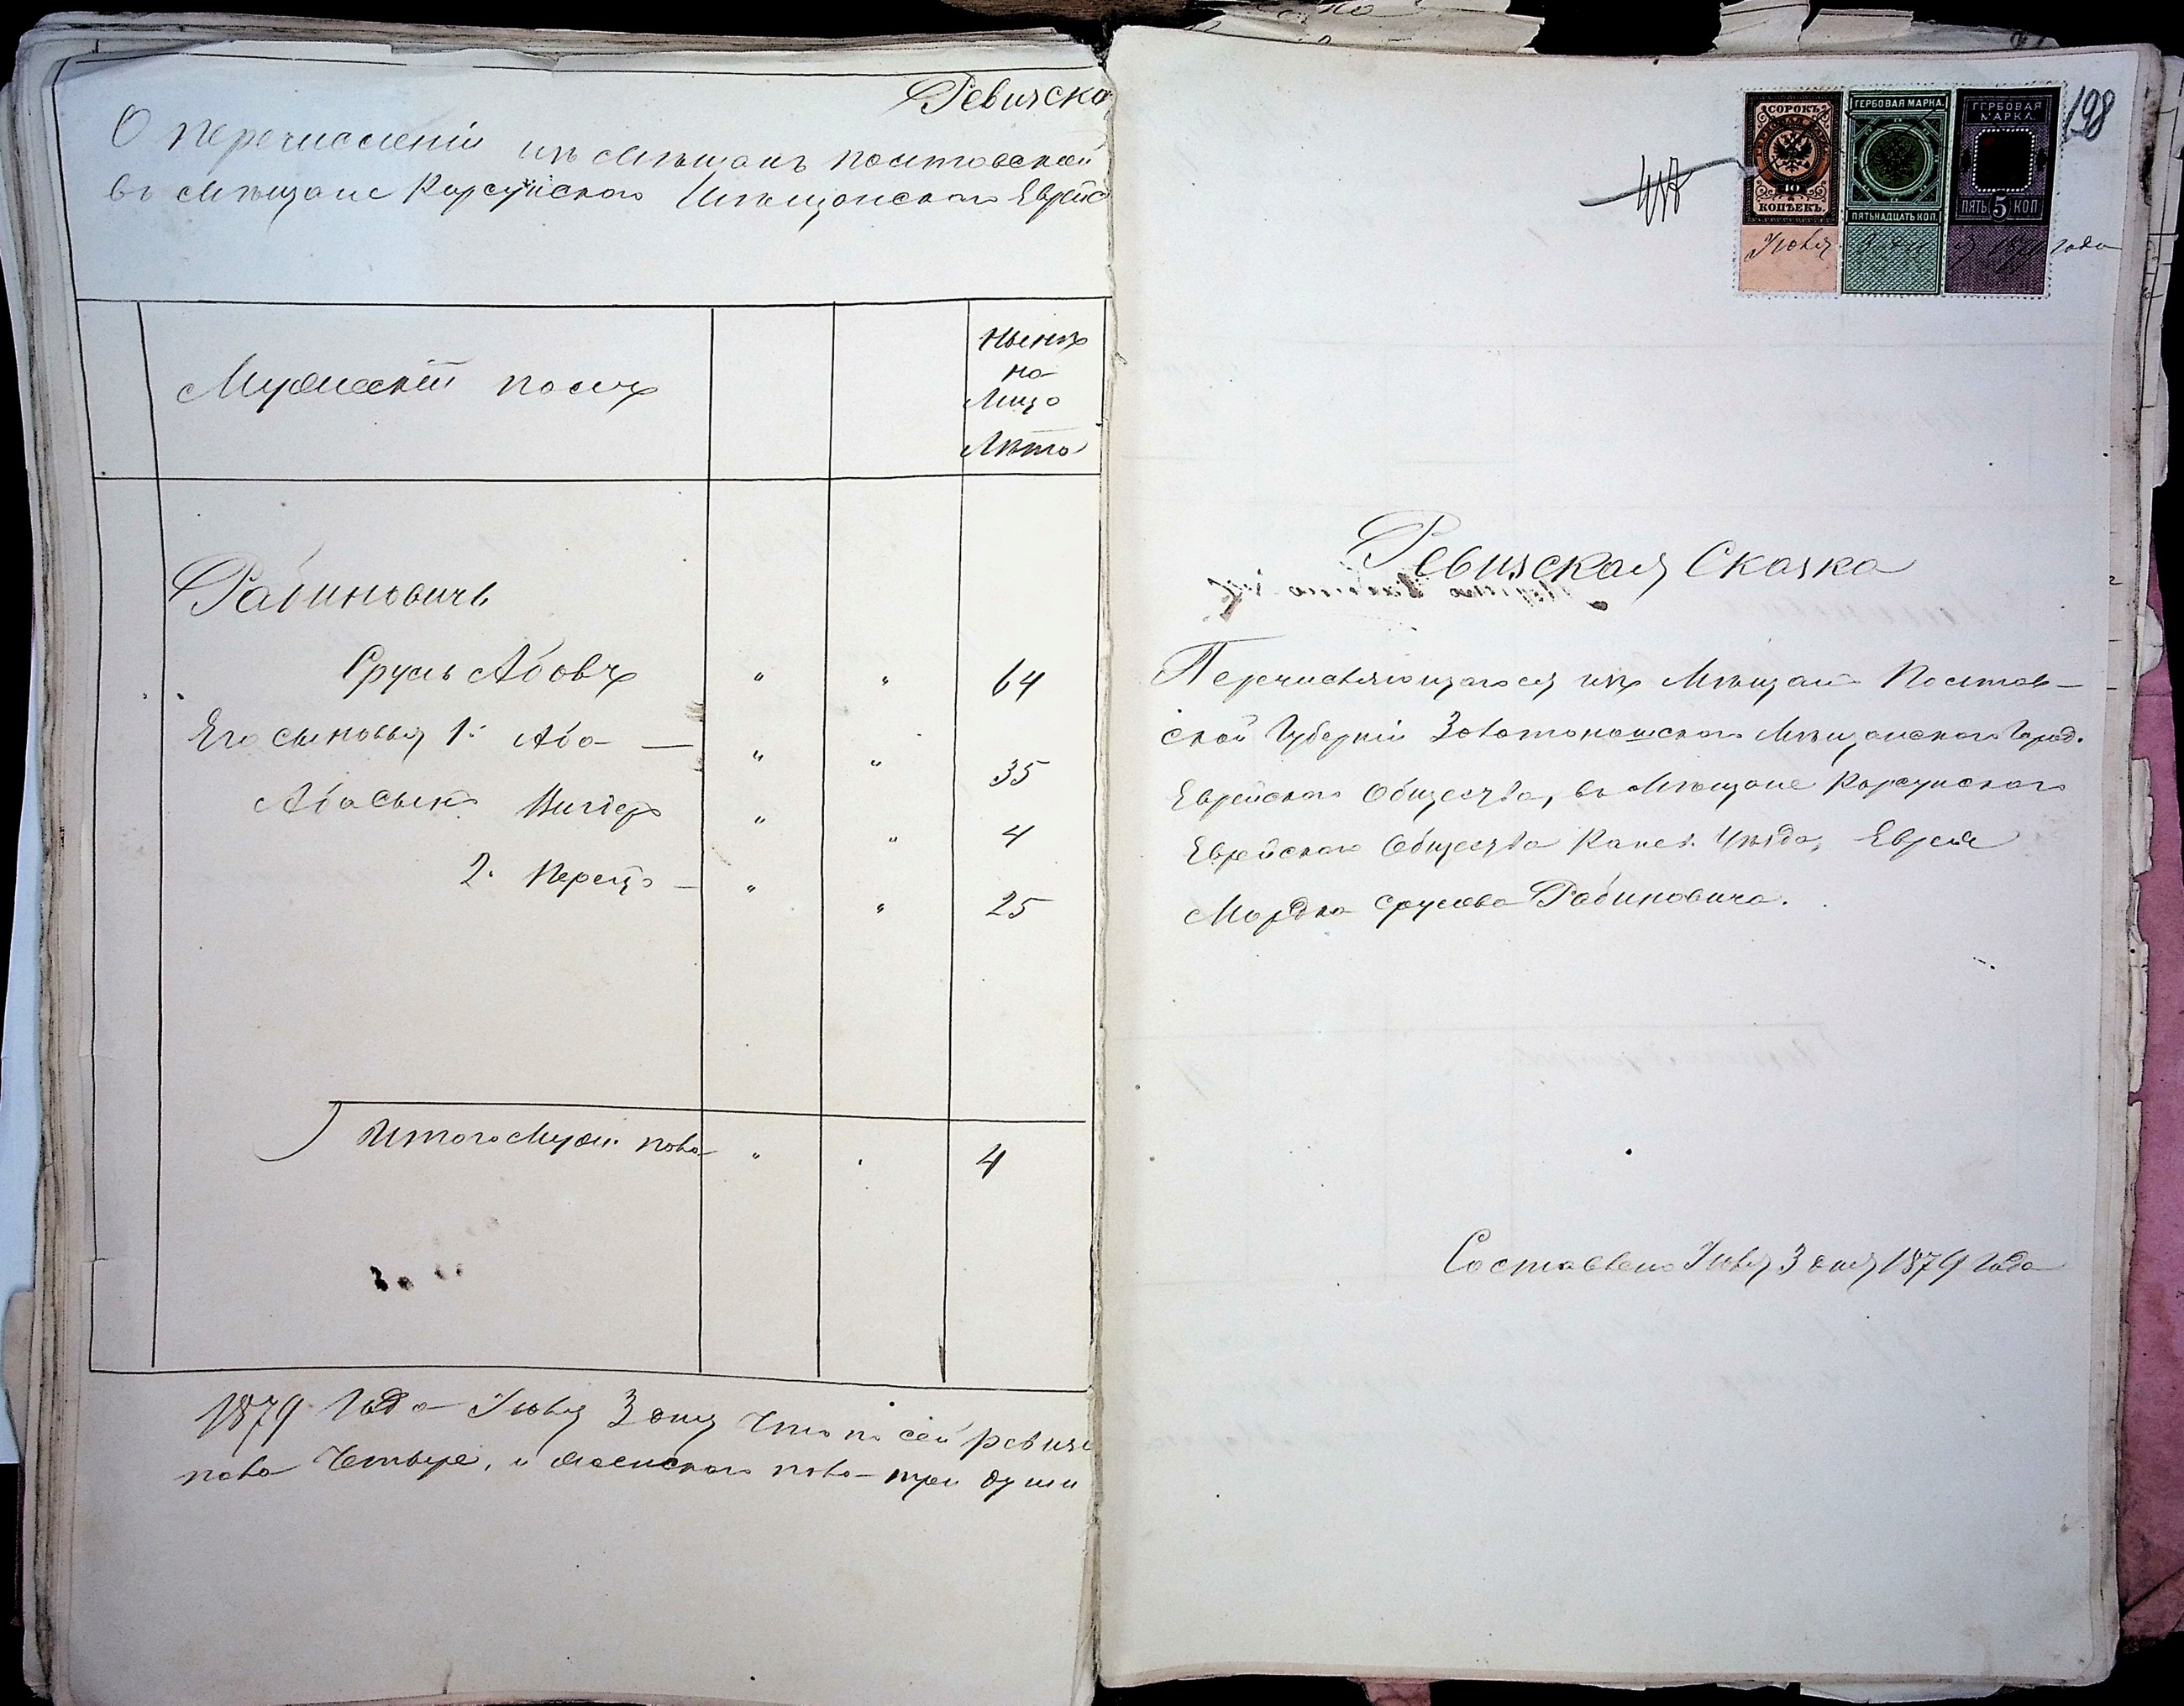 Ревизска
О перечислении изъ Мещанъ Полтовской
въ Мещане Корсунского Мещанского Еврейс
Мужескій полъ
Ныне
на
Лицо
Лета
Рабиновичъ
Срулъ Абовъ " " 64
Его сыновья 1. Аба — " " 35
Аба сынъ " " 4
2. Перецъ — " " 25
Итого Муж. пола " . 4
1879 Года Июля 3 дня Что по сей ревизс
пола Четыре, и женского пола три души
198
СОРОКЪ
40
КОПѢЕКЪ.
ГЕРБОВАЯ МАРКА.
ПЯТЬНАДЦАТЬ КОП.
ГЕРБОВАЯ
МАРКА.
ПЯТЬ 5 КОП
Июля 3 1879 года
Ревизская Сказка
Перечисляющагося изъ Мещан Полтов-
ской Губерніи Золотоношского Мещанского Город.
Еврейского Общества, въ Мещане Корсунского
Еврейского Общества Канев. Уезда, Еврея
Мордка Срулева Рабиновича.
Составлена Июля 3 дня 1879 Года